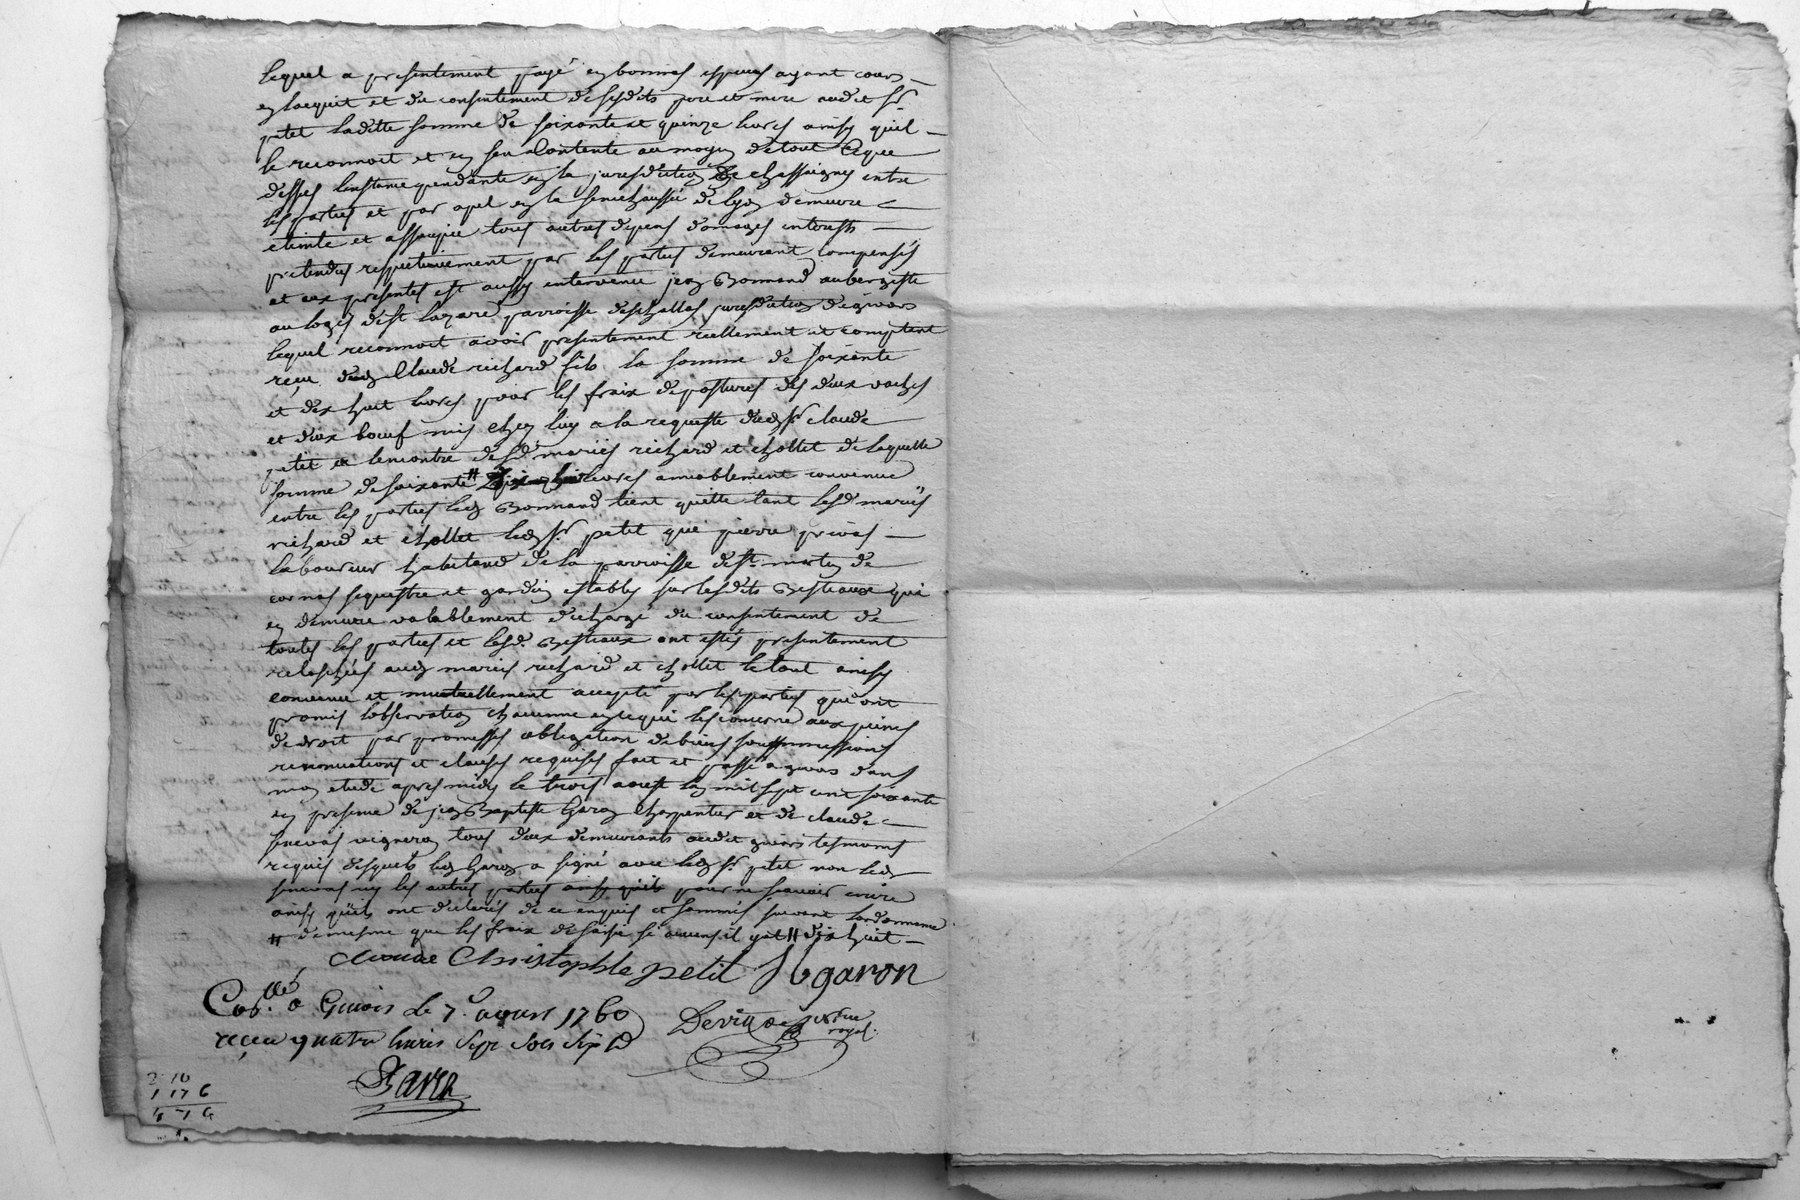 lequel a presentement payé en bonnes especes ayant cours
en lacquit et du consentement desesdits pere et mere audit sr
petit laditte somme de soixante et quinze livres ainsy quil
le reconnoit et sen contente au moyen de tout ce que
dessus linstance pendante en la jurisdiction de chassagny entre
les parties et par apel en la senechaussée de lyon demeure
eteinte et assoupie tous autres depens domages interests
pretendus respectivement par les parties demeurant compensés
et aux presentes est aussy intervenu jean Bonnand aubergiste
au logis de st lazare parroisse deschallas jurisdiction de givors
lequel reconnoit avoir presentement reellement et comptant
reçeu dud Claude richard fils la somme de soixante
et dix huit livres pour les fraix de pastures des deux vaches
et deux bœuf mis chez luy a la requeste dud sr claude
petit a lencontre desd mariés richard et chollet de laquelle
somme de soixante # livres amiablement convenue
entre les parties led Bonnand tient quitte tant lesd mariés
richard et chollet led sr petit que pierre privas
laboureur habitand de la parroisse de st martin de
cornas sequestre et gardien establis sur lesdits Bestiaux qui
en demeure valablement dechargé du consentement de
toutes les parties et lesd. Bestiaux ont estés presentement
relaschés aud mariés richard et chollet le tout ainsy
convenu et mutuellement accepté par les parties qui ont
promis lobservation chacune en ce qui les concerne aux peines
de droit par promesses obligation de biens soummissions
renonciations et clauses requises fait et passé a givors dans
mon etude apres midy le trois aoust lan mil sept cent soixante
en presence de jean Baptiste Garon charpentier et de claude
senevas vigneron tous deux demeurants audit givors tesmoins
requis desquels led Garon a signé avec led sr petit non led
senevas ny les autres parties ainsy quils pour ne sçavoir ecrire
ainsy quils ont declarés de ce enquis et sommés suivant lordonnance
# de mesme que les fraix de saisie si aucuns il y at # dix huit
claude Christophle petit JBgaron
Con.llé a Givors le 7.e aoust 1760
reçeu quatre livres sept sols six d
Deville nore royal.
2 10
1 17 6
4 7 6